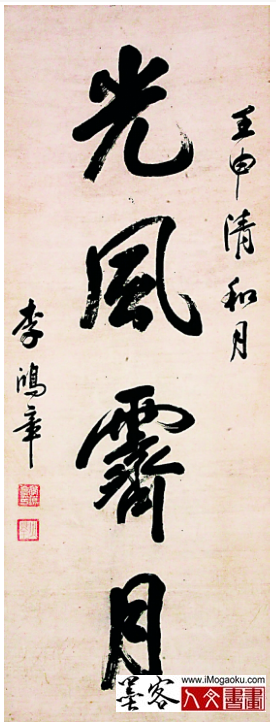 壬申清和月
光風霽月
李鴻章
www.iMogaoku.com
墨客
人文書畫